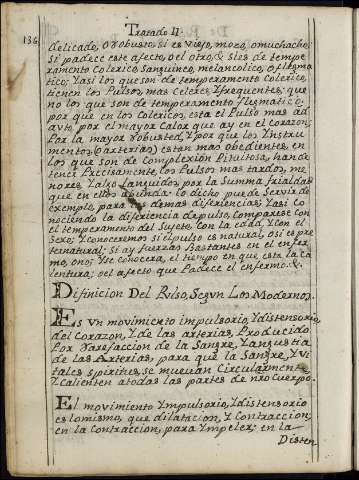 Tratado II.
136
delicado, o robusto, si es viejo, mozo, o muchacho;
si padece este afecto, o el otro, & si es de tempe-
ramento Colerico, Sanguineo, melancolico, o flegma-
tico; Y asi los que son de temperamento Colerico,
tienen los Pulsos mas Celeres, Y frequentes; que
no los que son de temperamento flegmatico;
por que en los Colericos, esta el Pulso mas ad
por el mayor Calor que ay en el corazon;
Por la mayor robusted, Y por que los Ynstru-
mentos (o arterias) estan mas obedientes, en
los que son de Complexion Pituitosa, han de
tener Precisamente, los Pulsos mas tardos, me-
nores, Y algo Languidos, por la Summa frialdad
que en ellos abunda: lo dicho puede Servir de
exemplo, para las demas diferiencias; Y asi Co-
nociendo la diferiencia de pulso, Comparese con
el temperamento del Sugeto, Con la edad, Y con el
Sexo; Y conoceremos si el pulso es natural, o si es pre-
ternatural; Si ay fuerzas Bastantes en el enfer-
mo, o no; Y se conocera, el tiempo en que esta la Ca-
lentura; o el afecto que Padece el enfermo. &.
Difinicion Del Pulso, Segun Los Modernos.
Es Un movimiento impulsorio, Y distensorio,
del Corazon, Y de las arterias, Producido
Por rarefaccion de la Sangre, Y angustia
de las Arterias, para que la Sangre, Y vi-
tales spiritus, se muevan Circularmente,
Y Calienten a todas las partes de nro Cuerpo.
El movimiento Ympulsorio, Y distensorio
es lo mismo, que dilatacion, Y Contraccion;
en la Contraccion, para Ympeler; en la
Disten